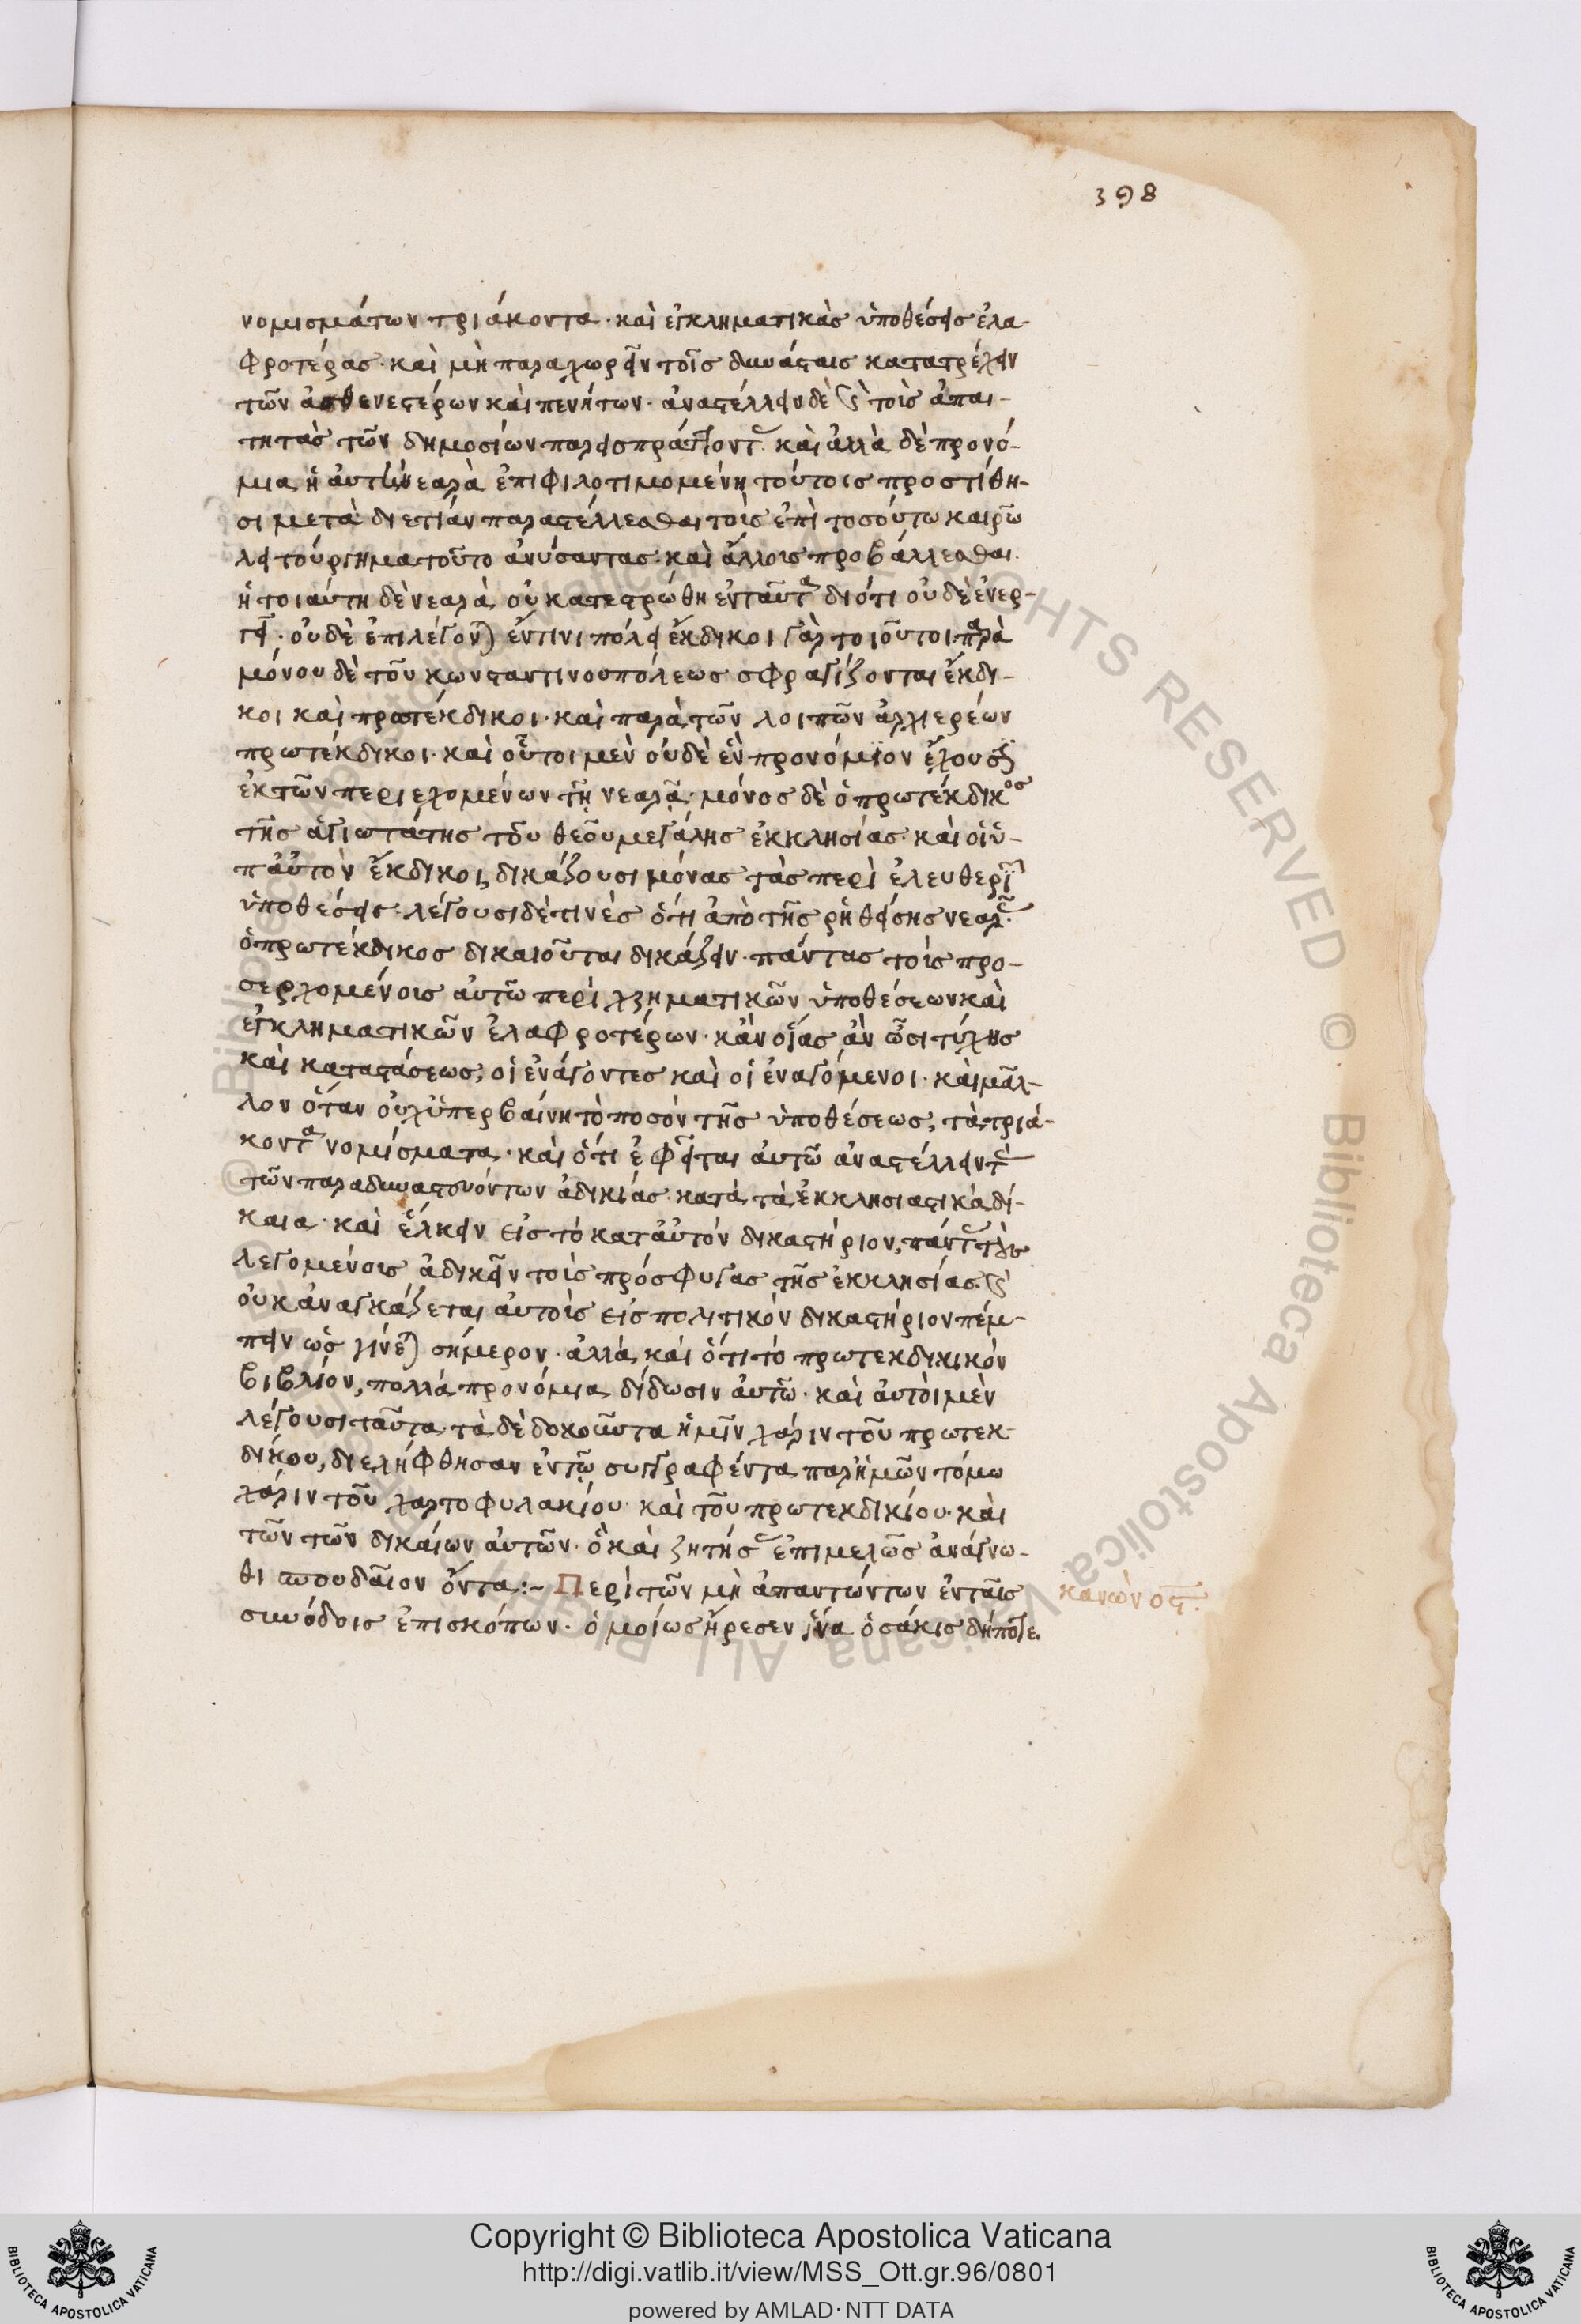 398
νομισμάτων τριάκοντα· καὶ ἐγκληματικὰς ὑποθέσεις ἐλα-
φροτέρας· καὶ μὴ παραχωρεῖν τοῖς δυνάσταις κατατρέχειν
τῶν ἀσθενεστέρων καὶ πενήτων· ἀναστέλλειν δὲ καὶ τοὺς ἀπαι-
τητὰς τῶν δημοσίων παρεισπράττοντας. καὶ ἄλλα δὲ προνό-
μια ἡ αὐτὴ νεαρὰ ἐπιφιλοτιμομένη τούτοις προστίθη-
σι μετὰ διετίαν παραστέλλεσθαι τοὺς ἐπὶ τοσούτω καιρῶ
λειτούργημα τοῦτο ἀνύσαντας· καὶ ἄλλοις προβάλλεσθαι.
ἡ τοιαύτη δὲ νεαρὰ οὐ κατεστρώθη ἐνταῦτα διότι οὐδὲ ἐνερ-
γεῖ· οὐδὲ ἐπιλέγονται ἔν τινι πόλει ἔκδικοι γὰρ τοιοῦτοι· παρὰ
μόνου δὲ τοῦ κωνσταντινουπόλεως σφραγίζονται ἔκδι-
κοι καὶ πρωτέκδικοι· καὶ παρὰ τῶν λοιπῶν ἀρχιερέων
πρωτέκδικοι· καὶ οὗτοι μὲν οὐδὲ ἓν προνόμιον ἔχουσιν
ἐκ τῶν περιεχομένων τῆ νεαρᾶ· μόνος δὲ ὁ πρωτέκδικος
τῆς ἁγιωτάτης τοῦ θεοῦ μεγάλης ἐκκλησίας· καὶ οἱ ὑ-
π' αὐτὸν ἔκδικοι, δικάζουσι μόνας τὰς περὶ ἐλευθερίας
ὑποθέσεις· λέγουσι δὲ τινὲς ὅτι ἀπὸ τῆς ῥηθείσης νεαρᾶς·
ὁ πρωτέκδικος δικαιοῦται δικάζειν· πάντας τοὺς προ-
σερχομένοις αὐτῶ περὶ χρηματικῶν ὑποθέσεων καὶ
ἐγκληματικῶν ἐλαφροτέρων· κἂν οἵας ἂν ὦσι τύχης
καὶ καταστάσεως, οἱ ἐνάγοντες καὶ οἱ ἐναγόμενοι· καὶ μᾶλ-
λον ὅταν οὐχ ὑπερβαίνη τὸ ποσὸν τῆς ὑποθέσεως, τὰ τριά-
κοντα νομίσματα· καὶ ὅτι ἐφεῖται αὐτῶ ἀναστέλλειν τὰς
τῶν παραδυναστευόντων ἀδικίας· κατὰ τὰ ἐκκλησιαστικὰ δί-
καια· καὶ ἕλκειν εἰς τὸ κατ' αὐτὸν δικαστήριον, πάντας τοὺς
λεγομένους ἀδικεῖν τοὺς πρόσφυγας τῆς ἐκκλησίας. καὶ
οὐκ ἀναγκάζεται αὐτοὺς εἰς πολιτικὸν δικαστήριον πέμ-
πειν ὡς γίνεται σήμερον· ἀλλὰ καὶ ὅτι τὸ πρωτεκδικικὸν
βιβλίον, πολλὰ προνόμια δίδωσιν αὐτῶ· καὶ αὐτοὶ μὲν
λέγουσι ταῦτα· τὰ δὲ δοκοῦντα ἡμῖν χάριν τοῦ πρωτεκ-
δίκου, διελήφθησαν ἐν τῶ συγγραφέντα παρ' ἡμῶν τόμω
χάριν τοῦ χαρτοφυλακίου· καὶ τοῦ πρωτεκδικίου· καὶ
τῶν τῶν δικαίων αὐτῶν· ὃ καὶ ζητήσας ἐπιμελῶς ἀνάγνω-
θι σπουδαῖον ὄντα:- Περὶ τῶν μὴ ἀπαντώντων ἐν ταῖς
συνόδοις ἐπισκόπων· ὁμοίως ἤρεσεν ἵνα ὁσάκις δήποτε
κανὼν οϛ.
Copyright © Biblioteca Apostolica Vaticana
http://digi.vatlib.it/view/MSS_Ott.gr.96/0801
powered by AMLAD·NTT DATA